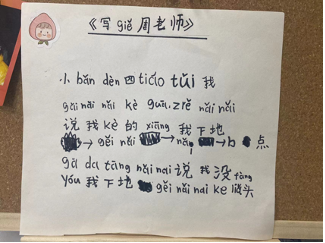 《写gěi周老师》
小bǎn dèn四tiáo tuǐ 我
gěi nǎi nai kè guā zǐ nǎi nǎi
说我kè的xiāng我下地
→gěi nǎi→nǎi→b点
gā da tāng nǎi nai说我没fàng
yóu我下地gěi nǎi nai ke 头